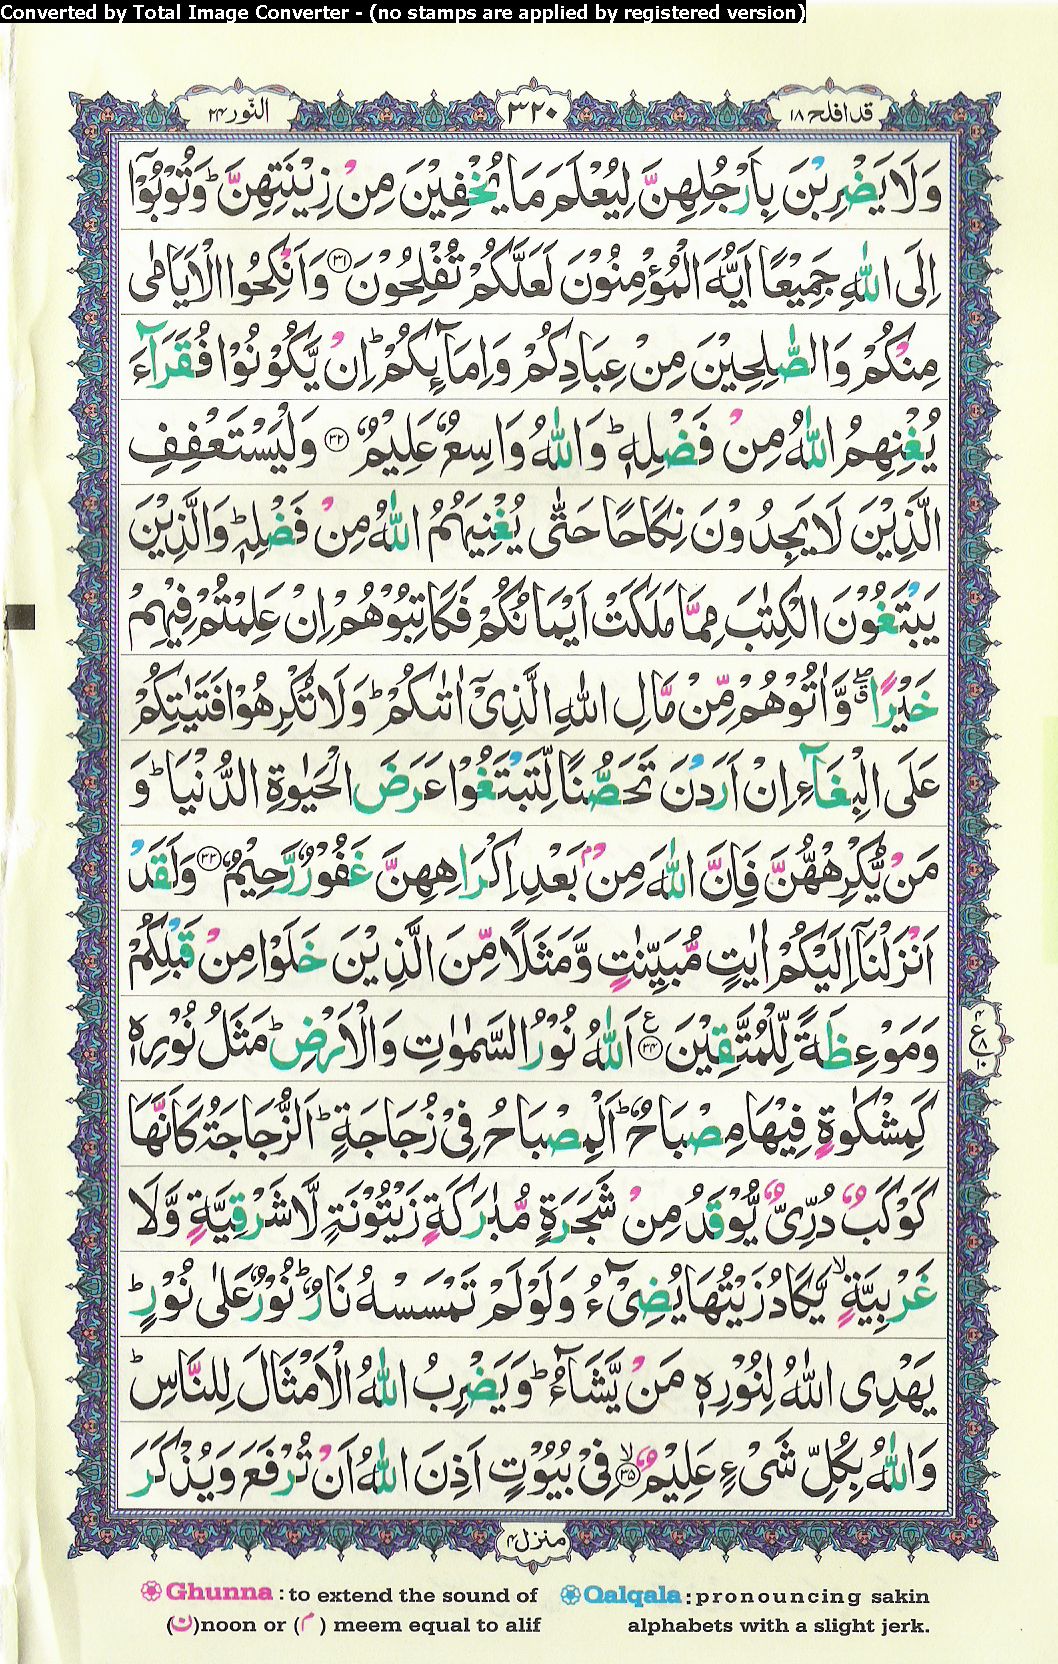 Converted by Total Image Converter - (no stamps are applied by registered version)
قد افلح ١٨
٣٢٠
النّور ٢٤
وَلَا يَضْرِبْنَ بِاَرْجُلِهِنَّ لِيُعْلَمَ مَا يُخْفِيْنَ مِنْ زِيْنَتِهِنَّ ؕ وَتُوْبُوْۤا
اِلَى اللّٰهِ جَمِيْعًا اَيُّهَ الْمُؤْمِنُوْنَ لَعَلَّكُمْ تُفْلِحُوْنَ ۝٣١ وَاَنْكِحُوا الْاَيَامٰى
مِنْكُمْ وَالصّٰلِحِيْنَ مِنْ عِبَادِكُمْ وَاِمَآىِٕكُمْ ؕ اِنْ يَّكُوْنُوْا فُقَرَآءَ
يُغْنِهِمُ اللّٰهُ مِنْ فَضْلِهٖ ؕ وَاللّٰهُ وَاسِعٌ عَلِيْمٌ ۝٣٢ وَلْيَسْتَعْفِفِ
الَّذِيْنَ لَا يَجِدُوْنَ نِكَاحًا حَتّٰى يُغْنِيَهُمُ اللّٰهُ مِنْ فَضْلِهٖ ؕ وَالَّذِيْنَ
يَبْتَغُوْنَ الْكِتٰبَ مِمَّا مَلَكَتْ اَيْمَانُكُمْ فَكَاتِبُوْهُمْ اِنْ عَلِمْتُمْ فِيْهِمْ
خَيْرًا ۖۗ وَّاٰتُوْهُمْ مِّنْ مَّالِ اللّٰهِ الَّذِيْۤ اٰتٰىكُمْ ؕ وَلَا تُكْرِهُوْا فَتَيٰتِكُمْ
عَلَى الْبِغَآءِ اِنْ اَرَدْنَ تَحَصُّنًا لِّتَبْتَغُوْا عَرَضَ الْحَيٰوةِ الدُّنْيَا ؕ وَ
مَنْ يُّكْرِهْهُّنَّ فَاِنَّ اللّٰهَ مِنْۢ بَعْدِ اِكْرَاهِهِنَّ غَفُوْرٌ رَّحِيْمٌ ۝٣٣ وَلَقَدْ
اَنْزَلْنَاۤ اِلَيْكُمْ اٰيٰتٍ مُّبَيِّنٰتٍ وَّمَثَلًا مِّنَ الَّذِيْنَ خَلَوْا مِنْ قَبْلِكُمْ
وَمَوْعِظَةً لِّلْمُتَّقِيْنَ ۝٣٤ ع اَللّٰهُ نُوْرُ السَّمٰوٰتِ وَالْاَرْضِ ؕ مَثَلُ نُوْرِهٖ
٤
ع
٨
١٠
كَمِشْكٰوةٍ فِيْهَا مِصْبَاحٌ ؕ اَلْمِصْبَاحُ فِيْ زُجَاجَةٍ ؕ اَلزُّجَاجَةُ كَاَنَّهَا
كَوْكَبٌ دُرِّيٌّ يُّوْقَدُ مِنْ شَجَرَةٍ مُّبٰرَكَةٍ زَيْتُوْنَةٍ لَّا شَرْقِيَّةٍ وَّلَا
غَرْبِيَّةٍ ۙ يَّكَادُ زَيْتُهَا يُضِيْٓءُ وَلَوْ لَمْ تَمْسَسْهُ نَارٌ ؕ نُوْرٌ عَلٰى نُوْرٍ ؕ
يَهْدِى اللّٰهُ لِنُوْرِهٖ مَنْ يَّشَآءُ ؕ وَيَضْرِبُ اللّٰهُ الْاَمْثَالَ لِلنَّاسِ ؕ
وَاللّٰهُ بِكُلِّ شَيْءٍ عَلِيْمٌ ۙ۝٣٥ فِيْ بُيُوْتٍ اَذِنَ اللّٰهُ اَنْ تُرْفَعَ وَيُذْكَرَ
منزل ٤
Ghunna : to extend the sound of
(ن)noon or (م) meem equal to alif
Qalqala : pronouncing sakin
alphabets with a slight jerk.